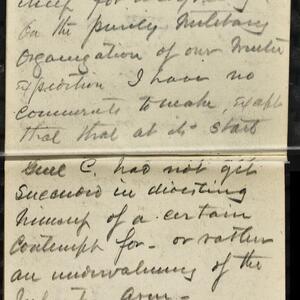 on the purely Military
Organization of our
Expedition I have no
comments to make except
that that at its start
Genl C. had not yet
Succeeded in divesting
himself of a certain
Contempt for - or rather
an undervaluing of the